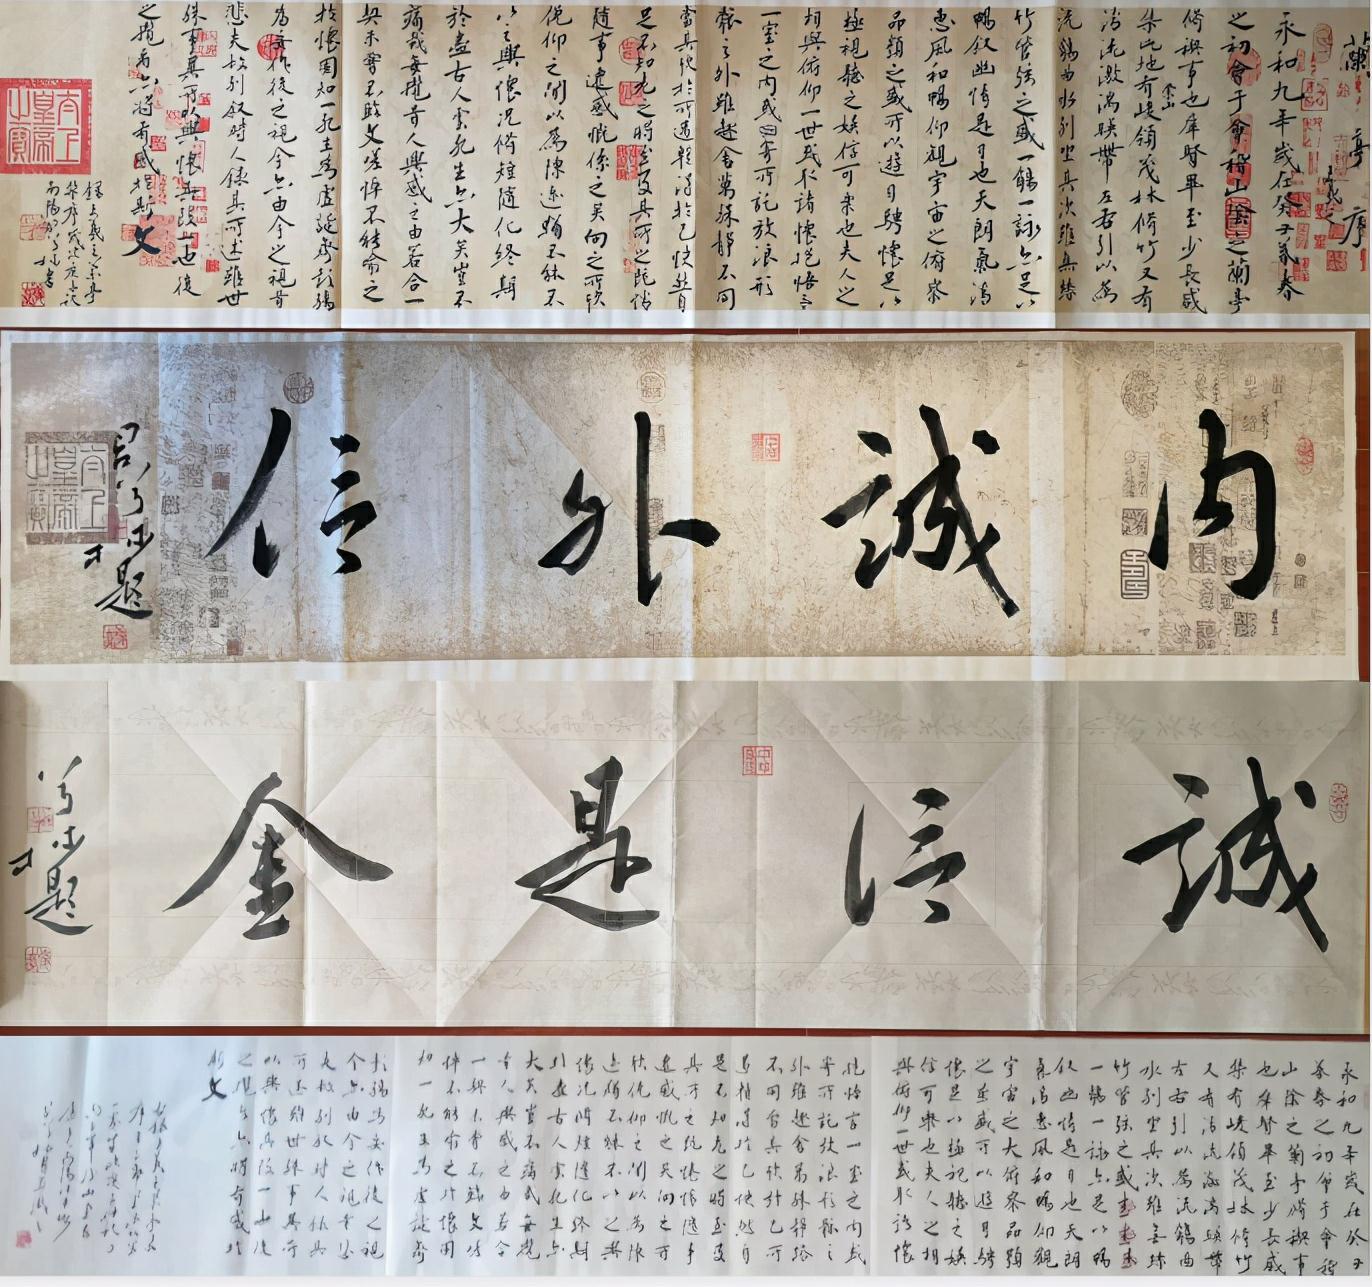 蘭亭集序
永和九年歲在癸丑暮春
之初會于會稽山陰之蘭亭
脩禊事也羣賢畢至少長咸
集此地有崇山峻領茂林脩竹又有
清流激湍暎帶左右引以為
流觴曲水列坐其次雖無絲
竹管弦之盛一觴一詠亦足以
暢叙幽情是日也天朗氣清
惠風和暢仰觀宇宙之俯察
品類之盛所以遊目騁懷足以
極視聽之娛信可樂也夫人之
相與俯仰一世或取諸懷抱悟言
一室之内或因寄所託放浪形
骸之外雖趣舍萬殊靜不同
當其欣於所遇暫得於己快然自
足不知老之將至及其所之既惓
隨事遷感慨係之矣向之所欣
俛仰之閒以為陳迹猶不能不
以之興懷況脩短隨化終期
於盡古人云死生亦大矣豈不
痛哉每攬昔人興感之由若合一
契未嘗不臨文嗟悼不能喻之
於懷固知一死生為虛誕齊彭殤
為妄作後之視今亦由今之視昔
悲夫故列叙時人錄其所述雖世
殊事異所以興懷其致一也後
之攬者亦將有感於斯文
太上皇帝之寶
内誠外信
題
太上皇帝之寶
誠信是金
題
永和九年歲在癸丑
暮春之初會于會稽
山陰之蘭亭脩禊事
也羣賢畢至少長咸
集有峻領茂林脩竹
又有清流激湍暎帶
左右引以為流觴曲
水列坐其次雖無絲
竹管弦之盛
一觴一詠亦足以暢
叙幽情是日也天朗
氣清惠風和暢仰觀
宇宙之大俯察品類
之盛所以遊目騁
懷足以極視聽之娛
信可樂也夫人之相
與俯仰一世或取諸懷
抱悟言一室之内或
寄所託放浪形骸之
外雖趣舍萬殊靜躁
不同當其欣於己所
遇暫得於己快然自
足不知老之將至及
其所之既惓情隨事
遷感慨之矣向之所
欣俛仰之閒以為陳
迹猶不能不以之興
懷況脩短隨化終期
於盡古人云死生亦
大矣豈不痛哉每攬
昔人興感之由若合
一契未嘗不臨文嗟
悼不能喻之於懷固
知一死生為虛誕齊
彭殤為妄作後之視
今亦由今之視昔悲
夫故列叙時人錄其
所述雖世殊事異所
以興懷其致一也後
之攬者亦將有感於
斯文